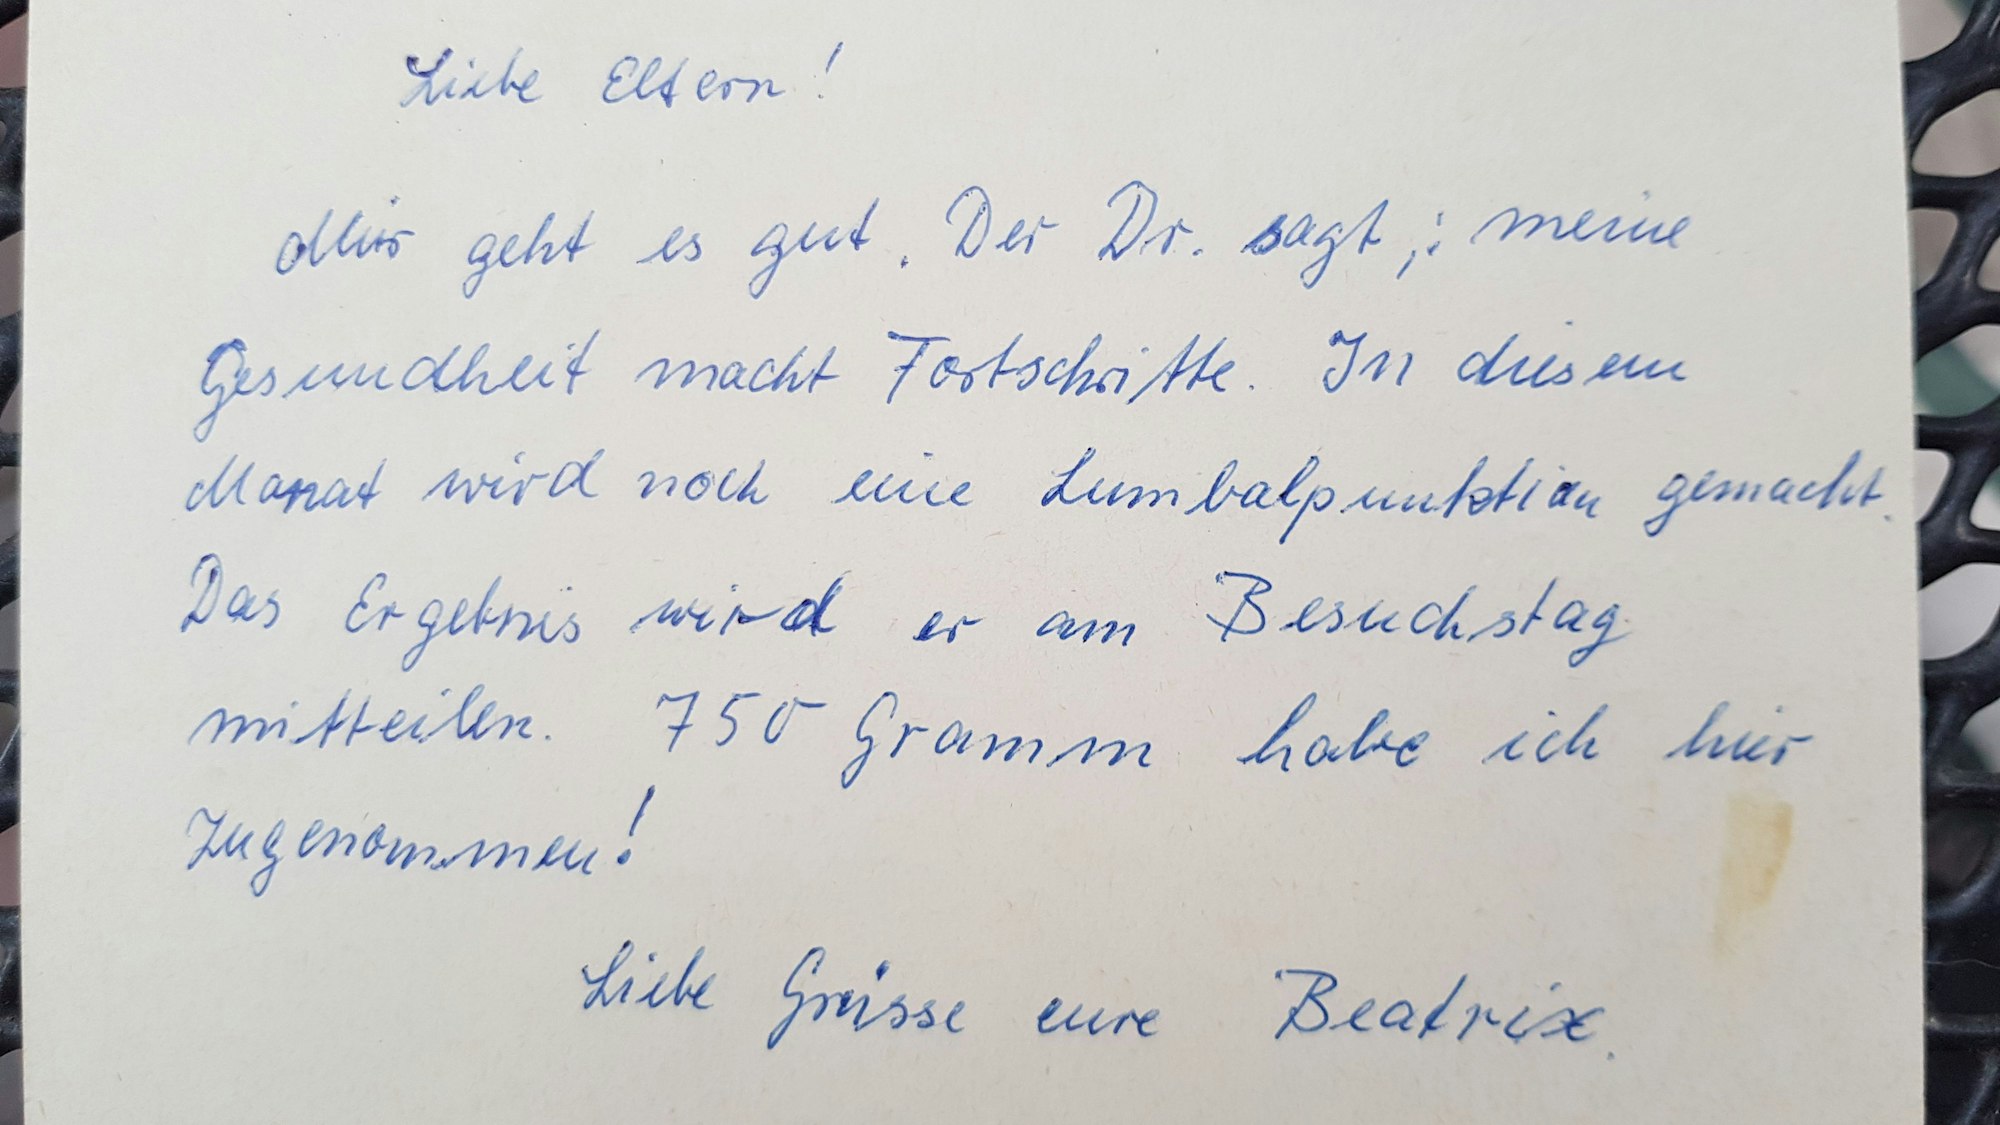 Liebe Eltern!
Mir geht es gut. Der Dr. sagt,: meine
Gesundheit macht Fortschritte. In diesem
Monat wird noch eine Lumbalpunktion gemacht.
Das Ergebnis wird er am Besuchstag
mitteilen. 750 Gramm habe ich hier
zugenommen!
Liebe Grüsse eure Beatrix.